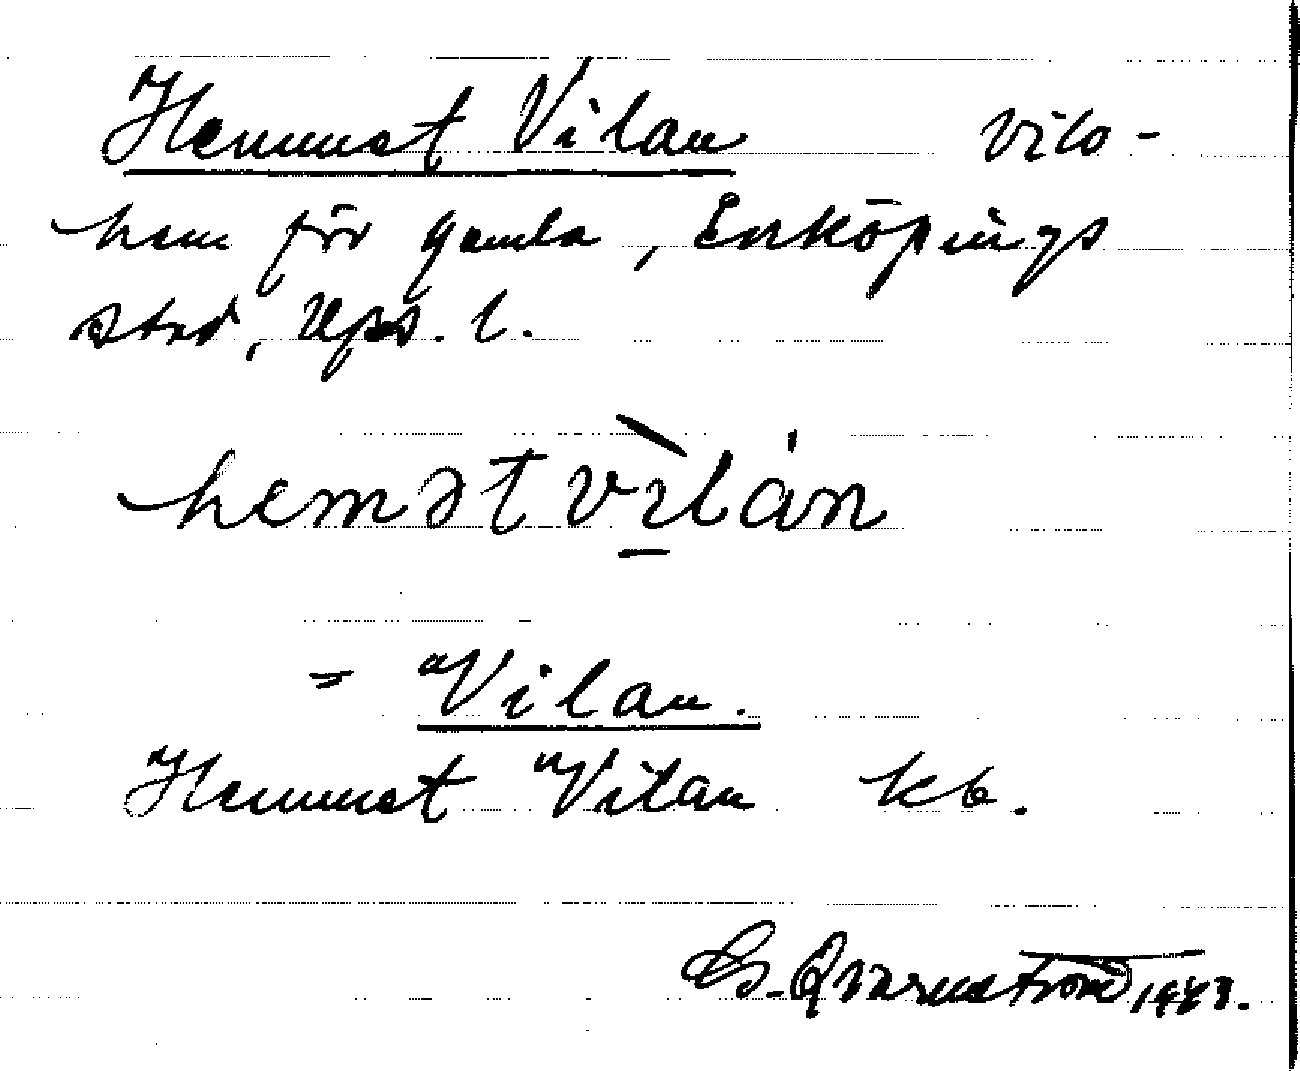 Hemmet Vilan vilo-
hem för gamla, Enköpings
stad, Ups. l.
hemət vìlán
= "Vilan.
Hemmet "Vilan kb.
G. Qvarnström